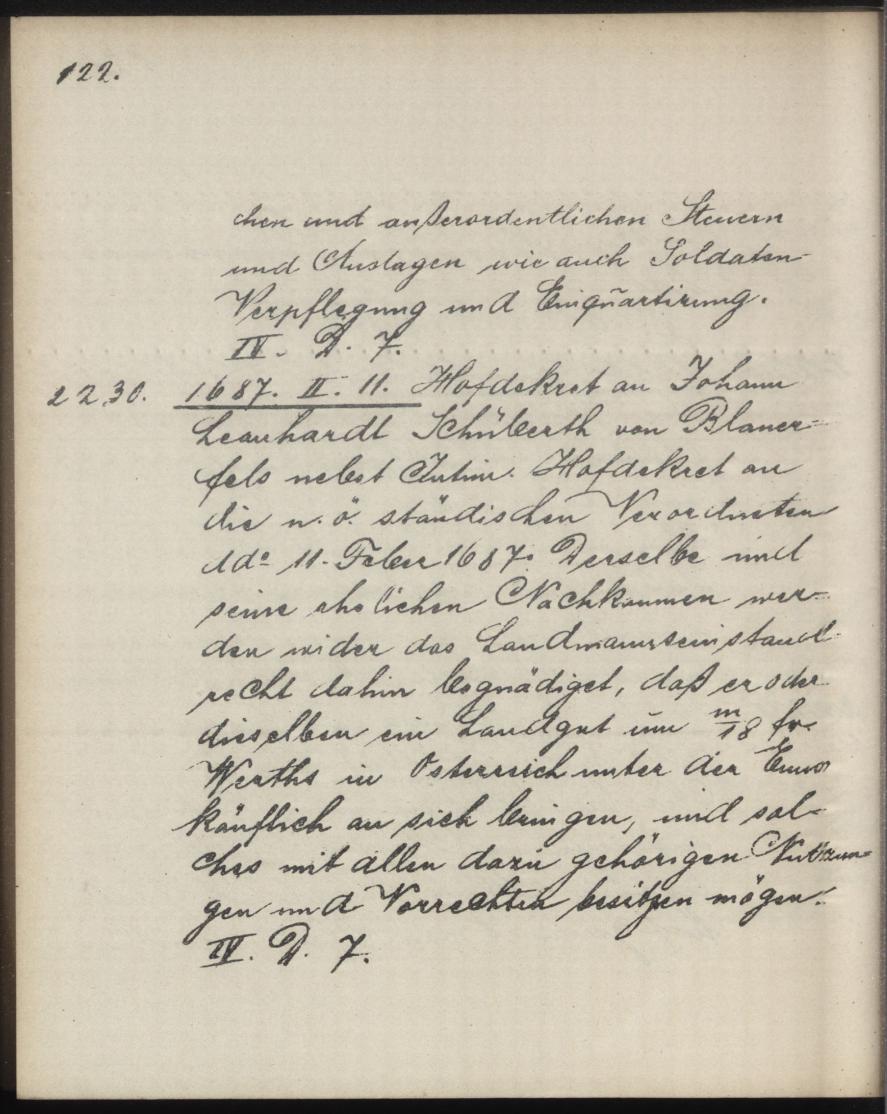 122.
chen und außerordentlichen Steuern
und Auslagen wie auch Soldaten-
Verpflegung und Einquartirung.
IV. D. 7.
2230. 1687. II. 11. Hofdekret an Johann
Leonhardt Schüberth von Blauer-
fels nebst Intim. Hofdekret an
die n. ö. ständischen Verordneten
ddo 11. Feber 1687. Derselbe und
seine ehelichen Nachkommen wer-
den wider das Landmannseinstand-
recht dahin begnädiget, daß er oder
dieselben ein Landgut um m/18 fr.
Werths in Österreich unter der Enns
käuflich an sich bringen, und sol-
ches mit allen dazu gehörigen Nutzun-
gen und Vorrechten besitzen mögen.
IV. D. 7.